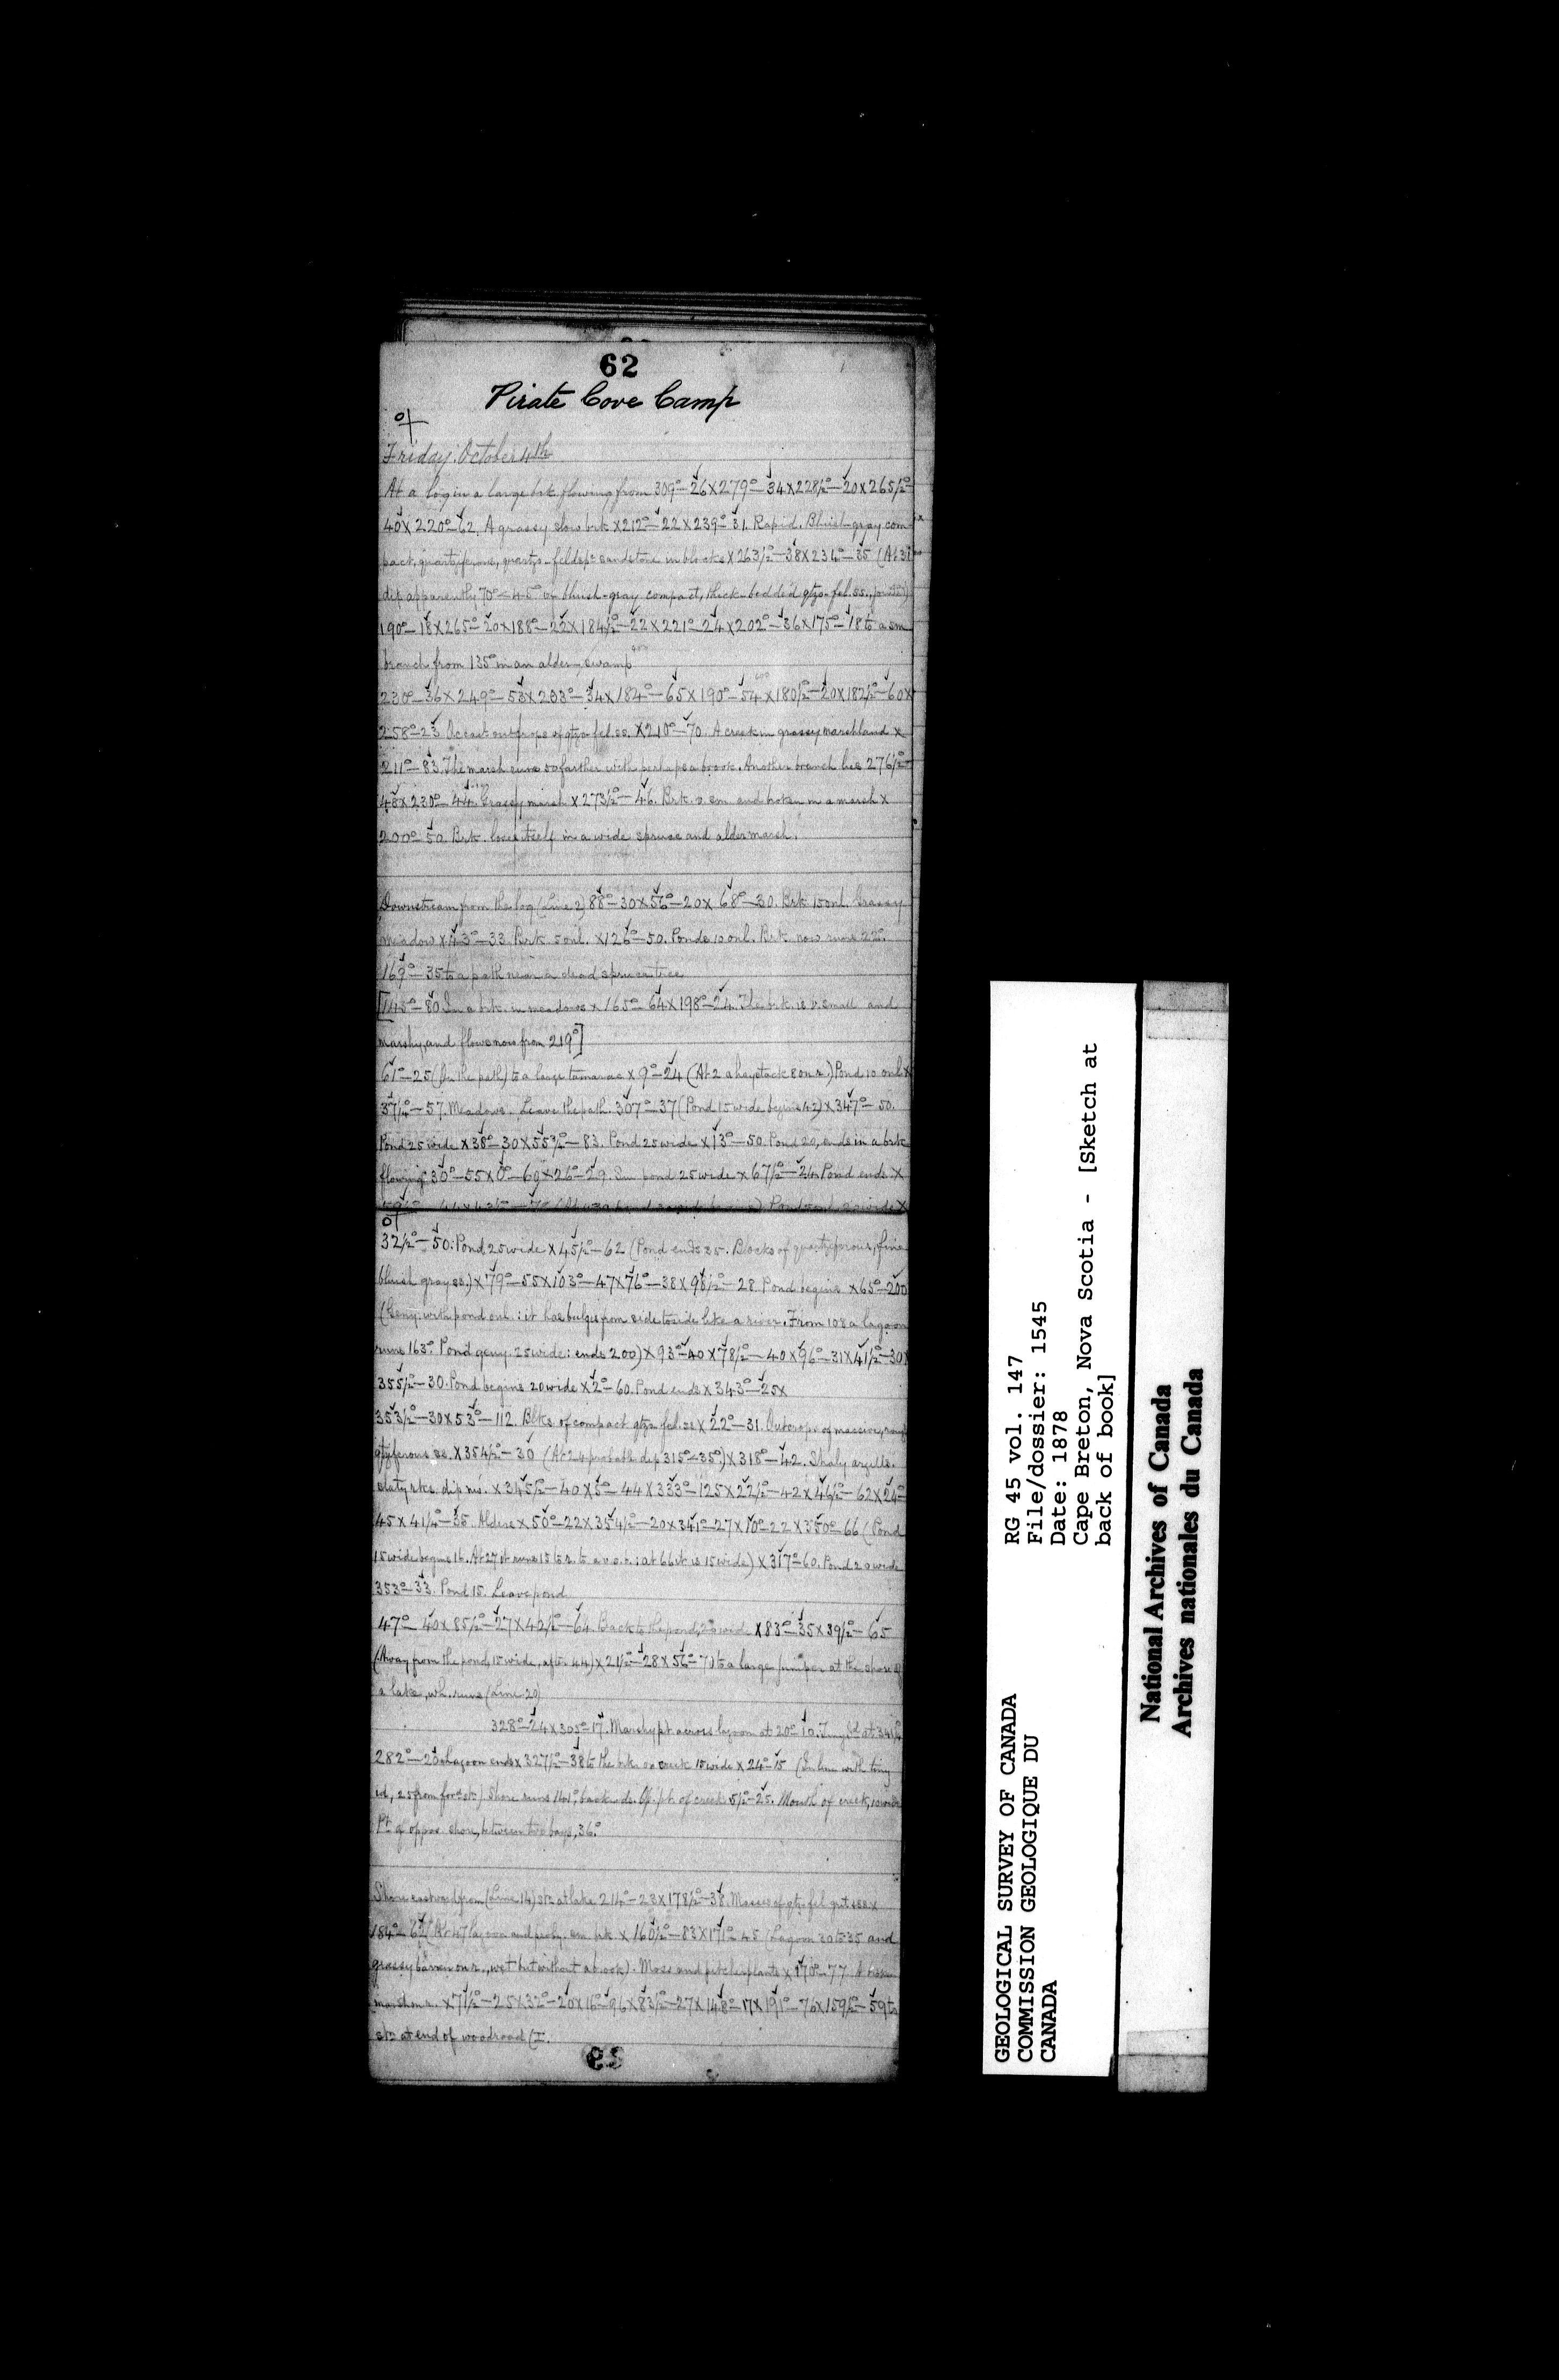 62
Pirate Cove Camp
Friday. October 4th
At a log in a large brk flowing from 309°–26 x 279°–34 x 228½°–20 x 265½°–
40 x 220°–62. A grassy slow brk x 212°–22 x 239°–31. Rapid. Bluish-gray com-
pact, quartziferous, quartzo-feldsp. sandstone in blocks x 263½°–38 x 234°–35 (At 31
dip apparently 70° < 45° of bluish-gray compact, thick-bedded qtzo-fel. ss., jointed)
190°–18 x 265°–20 x 188°–22 x 184½°–22 x 221°–24 x 202°–36 x 175°–18 to a sm
branch from 135° in an alder swamp
230°–36 x 249°–53 x 203°–34 x 184°–65 x 190°–54 x 180½°–20 x 182½°–60 x
258°–23 Occast. outcrops of qtzo fel. ss. x 210°–70. A creek in grassy marshland x
211°–83. The marsh runs 50 farther with perhaps a brook. Another branch lies 276½°–
48 x 230°–44. Grassy marsh x 273½°–46. Brk. v. sm. and broken in a marsh x
200°–50. Brk. loses itself in a wide spruce and alder marsh.
Downstream from the log (Line 2) 88°–30 x 56°–20 x 68°–30. Brk 15 onl. Grassy
meadow x 43°–33. Brk. 5 onl. x 126°–50. Ponds 10 onl. Brk. now runs 22°.
169°–35 to a path near a dead spruce tree
[145°–80 In a brk. in meadows x 165°–64 x 198°–24. The brk. is v. small and
marshy, and flows now from 219°]
61°–25 (In the path) to a large tamarac x 9°–24 (At 2 a haystack 8 on r.) Pond 10 onl x
37½°–57. Meadows. Leave the path. 307°–37 (Pond 15 wide begins 42) x 347°–50.
Pond 25 wide x 38°–30 x 55½°–83. Pond 25 wide x 13°–50. Pond 20, ends in a brk
flowing 30°–55 x 0°–69 x 26°–29. In pond 25 wide x 67½°–24. Pond ends x
32½°–50. Pond 25 wide x 45½°–62 (Pond ends 35. Blocks of quartziferous, fine
bluish gray ss.) x 79°–55 x 103°–47 x 76°–38 x 98½°–28. Pond begins x 65°–200
(Geny. with pond onl.: it has bulges from side to side like a river. From 108 a lagoon
runs 163°. Pond geny. 25 wide: ends 200) x 93°–40 x 78½°–40 x 96°–31 x 41½°–30 x
355½°–30. Pond begins 20 wide x 2°–60. Pond ends x 343°–25 x
353½°–30 x 53°–112. Blks. of compact qtzo fel. ss x 22°–31. Outcrops of massive, rough
qtzferous ss. x 354½°–30 (At 24 probable dip 315° < 35°) x 318°–42. Shaly argills.
slaty rks. dip nw. x 345½°–40 x 5°–44 x 333°–125 x 22½°–42 x 46½°–62 x 24°–
45 x 41½°–35. Alders x 50°–22 x 354½°–20 x 341°–27 x 10°–22 x 350°–66 (Pond
15 wide begins 16. At 27 it runs 15 to r. to a : at 66 it is 15 wide) x 317°–60. Pond 20 wide
353°–33. Pond 15. Leave pond
47°–40 x 85½°–27 x 42½°–64. Back to the pond, 20 wide x 83°–35 x 39½°–65
(Away from the pond, 15 wide, after 44) x 21½°–28 x 56°–70 to a large juniper at the shore of
a lake, wh. runs (Line 20)
328°–24 x 305°–17. Marshy pt across lagoon at 20°–10. Tiny isl. at 34½°
282°–20 Lagoon ends x 327½°–38 to the brk or creek 15 wide x 24°–15 (In line with tiny
isl, 25 from for. stn) Shore runs 141°, backwds. Op. pt. of creek 5½°–25. Mouth of creek, 10 wide
Pt. of oppos. shore, between two bays, 36°
Shore eastward from (Line 14) stn at lake 214°–23 x 178½°–38. Masses of qtzo fel grit & ss. x
184°–62 (At 47 lagoon and proby. sm brk. x 160½°–83 x 171°–45 (Lagoon 30 to 35 and
grassy barren on r., wet but without a brook). Moss and pitcher plants x 170°–77. A broken
marsh on r. x 71½°–25 x 32°–20 x 16°–96 x 83½°–27 x 148°–17 x 191°–76 x 159½°–59 to
stn at end of woodroad (I.
GEOLOGICAL SURVEY OF CANADA
COMMISSION GEOLOGIQUE DU
CANADA
RG 45 vol. 147
File/dossier: 1545
Date: 1878
Cape Breton, Nova Scotia - [Sketch at
back of book]
National Archives of Canada
Archives nationales du Canada